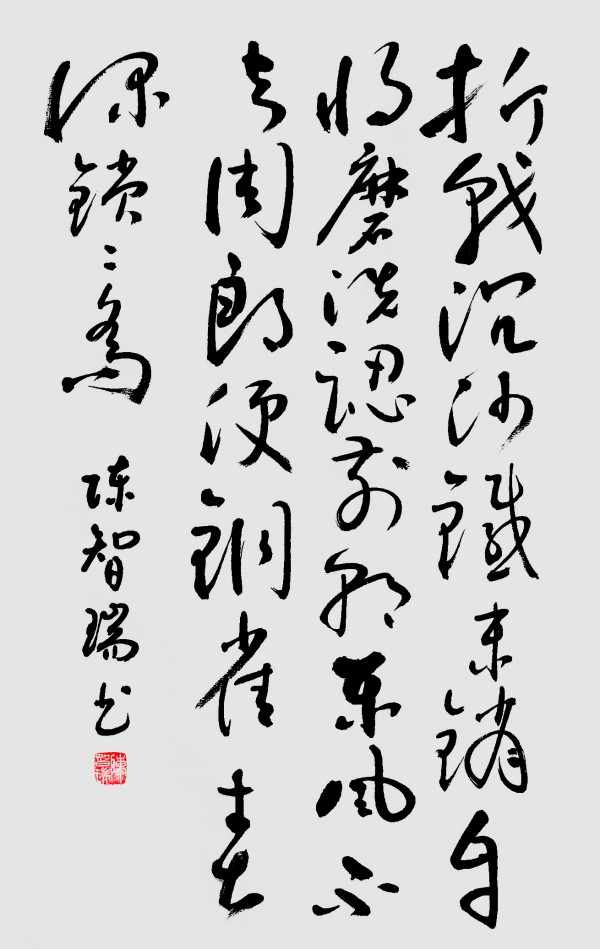 折戟沉沙鐵未銷自
將磨洗認前朝東風不
与周郎便銅雀春
深鎖二喬
陳智瑞书